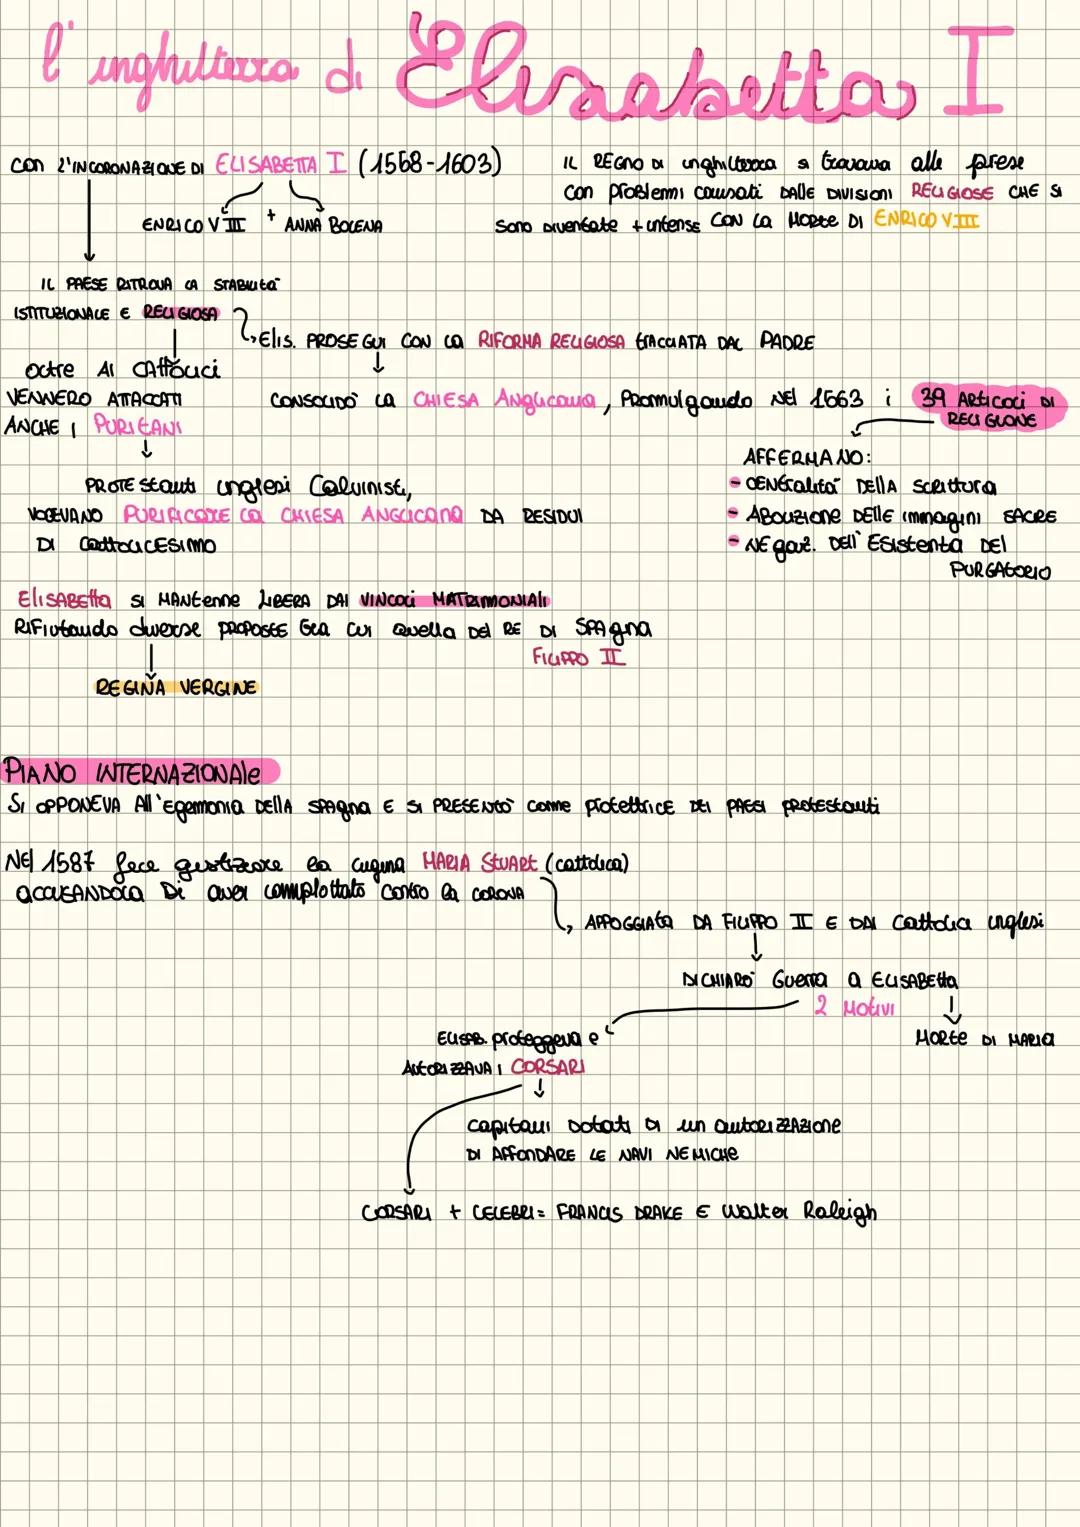 l'inghilterra di Elisabetta I
con l'INCORONAZIONE DI ELISABETTA I (1558-1603)
ENRICO VIII + ANNA BOLENA
IL REGNO DI inghilterra si trovava alle prese
con problemi causati DALLE DIVISIONI RELIGIOSE CHE SI
SONO DIVENTATE + intense CON LA MORTE DI ENRICO VIII
IL PAESE RITROVA LA STABILITà
ISTITUZIONALE E RELIGIOSA
Elis. PROSEGUì CON LA RIFORMA RELIGIOSA tRACCIATA DAL PADRE
OLTRE AI CATTOLICI
VENNERO ATTACCATI
ANCHE I PURITANI
CONSOLIDÒ LA CHIESA Anglicana, PROMULgando NEl 1563 i 39 ARticoli DI
RELIGIONE
PROTEStanti inglesi Calvinisti,
VOLEVANO PURIFICARE LA CHIESA ANGLICANA DA RESIDUI
DI CattoLICESIMO
AFFERMANO:
- CENtralità DELLA SCRIttURA
- ABOLIZIONE DELLE immagini SACRE
- NEgaz. DEll' Esistenza DEl
PURGATORIO
ElISABEtta SI MANtenne LIBERA DAI VINCOLI MATRIMONIALI
RIFIutando diverse PROPOSTE tra cui quella DEl RE DI SPAgna
FILIPPO II
REGINA VERGINE
PIANO INTERNAZIONAle
SI OPPONEVA All'Egemonia DELLA SPAgna E SI PRESENTÒ come protettrice DEI PAESI protestanti
NEl 1587 fece giustiziare la cugina MARIA StUARt (cattolica)
accUSANDOLA DI aver complottato contro la CORONA
APPOGGIAta DA FILIPPO II E DAI Cattolici inglesi
DICHIARÒ GUERRA a ELISABEtta
2 MOtIVI
ELISAB. proteggeva e
AUtORIZZAVA I CORSARI
MORte DI MARIA
capitani DOtati DI un autoRIZZAZIone
DI AFFONDARE LE NAVI NEMICHE
CORSARI + CELEBRI = FRANCIS DRAKE E Walter Raleigh